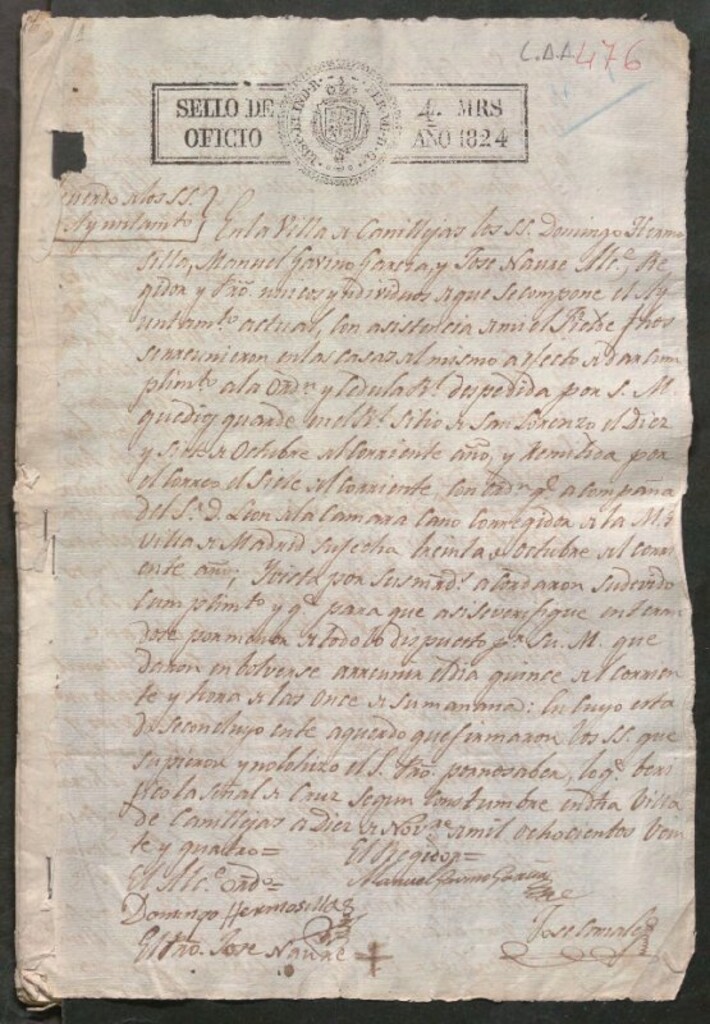 C.A.A 476
SELLO DE OFICIO
4. MRS
AÑO 1824
Ayuntamto
En la Villa de Canillejas los SS. Domingo Hermo
silla, Manuel Gavino Garcia, y Jose Naure Alce, Re
gidor y Pro. unicos yndividuos de que se compone el Ay
untamto actual, con asistencia de mi el Fiel de fhos
se reunieron en las casas del mismo a efecto de dar cum
plimto a la Ordn y Cedula Rl. despedida por S. M.
que dios guarde en el Rl. Sitio de San Lorenzo el Diez
y Siete de Octubre del Corriente año, y remitida por
el Correo el Siete del Corriente, con ordn q. acompaña
del Sr. D. Leon de la Camara Cano Corregidor de la M. H.
Villa de Madrid su fecha treinta de Octubre del corri
ente año; Y vista por sus mrds. acordaron su devido
cumplimto y qe para que asi se verifique enteran
dose por menor de todo lo dispuesto pr. Su. M. que
daron en bolverse a reunir el dia quince del Corrien
te y hora de las Once de su mañana: En cuyo esta
do se concluyo este aquerdo que firmaron los SS. que
supieron y no lo hizo el S. Pro. por no saber, lo q. beri
fico la señal de Cruz segun Constumbre en dha Villa
de Canillejas a Diez de Novre de mil ochocientos Vein
te y quatro=
El Regidor=
El Alce. ordo=
Manuel Gavino Garcia
Domingo Hermosilla
Jose Gonzalez
El Pro. Jose Naure +